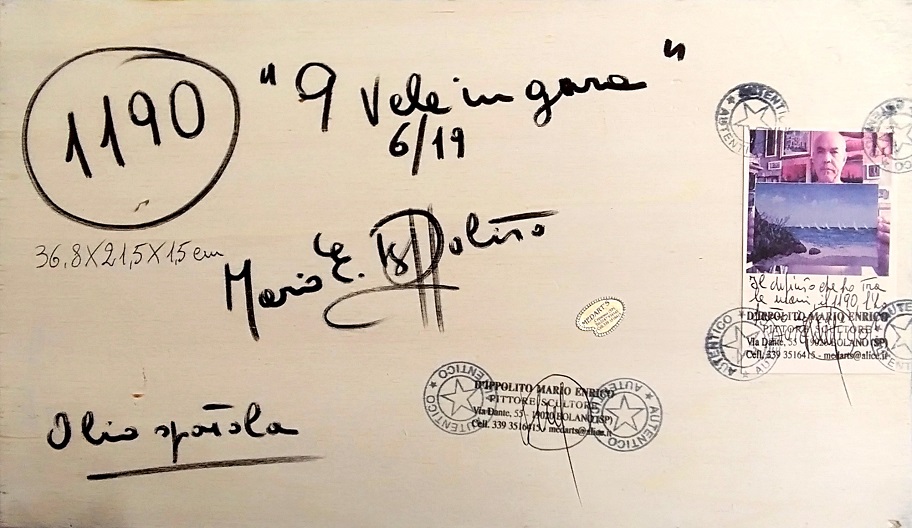 1190
"9 Vele in gara"
6/19
36,8X21,5X1,5 cm
Mario E.
Olio spatola
MEDART'S
AUTENTICO
D'IPPOLITO MARIO ENRICO
PITTORE SCULTORE
Via Dante, 55 - 19020 BOLANO (SP)
Cell. 339 3516415 - medarts@alice.it
AUTENTICO
AUTENTICO
Il dipinto che ho tra
le mani, il 1190, l'ho
D'IPPOLITO MARIO ENRICO
PITTORE SCULTORE
Via Dante, 55 - 19020 BOLANO (SP)
Cell. 339 3516415 - medarts@alice.it
AUTENTICO